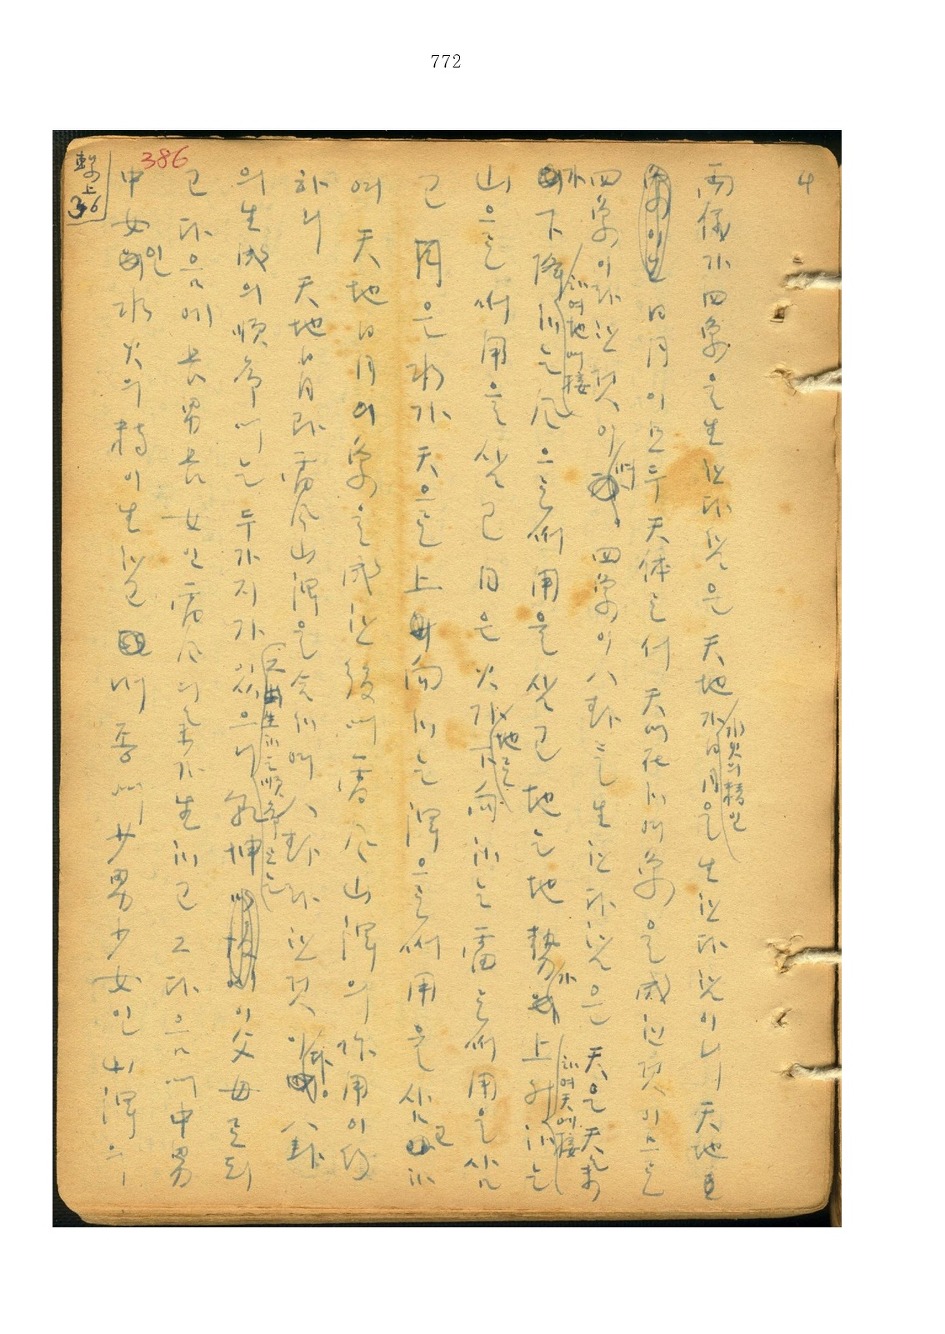 772
4
386
繫上
36
兩儀가 四象을 生한다 함은 天地가 水火의 精인 日月을 生한다 함이니 天地
日月이 모두 天体로서 天에 在하여 象을 成한 것이므로
四象이라 한 것이며 四象이 八卦를 生한다 함은 天은 天氣
가 下降하여 地에 接하는 風으로 作用을 삼고 地는 地勢가 上升하여 天에 接하는
山으로 作用을 삼고 日은 火가 地로 向하는 雷로 作用을 삼
고 月은 水가 天으로 上向하는 澤으로 作用을 삼고
여 天地日月의 象을 成한 後에 雷風山澤의 作用이 있
하니 天地日月과 雷風山澤을 合하여 八卦라 한 것이다 八卦
의 生成의 順序에는 두가지가 있으니 그 出生하는 順序로는 乾坤이 父母로 되
고 다음에 長男長女인 雷風의 氣가 生하고 그 다음에 中男
中女인 水火의 精이 生하고 에 少男少女인 山澤의